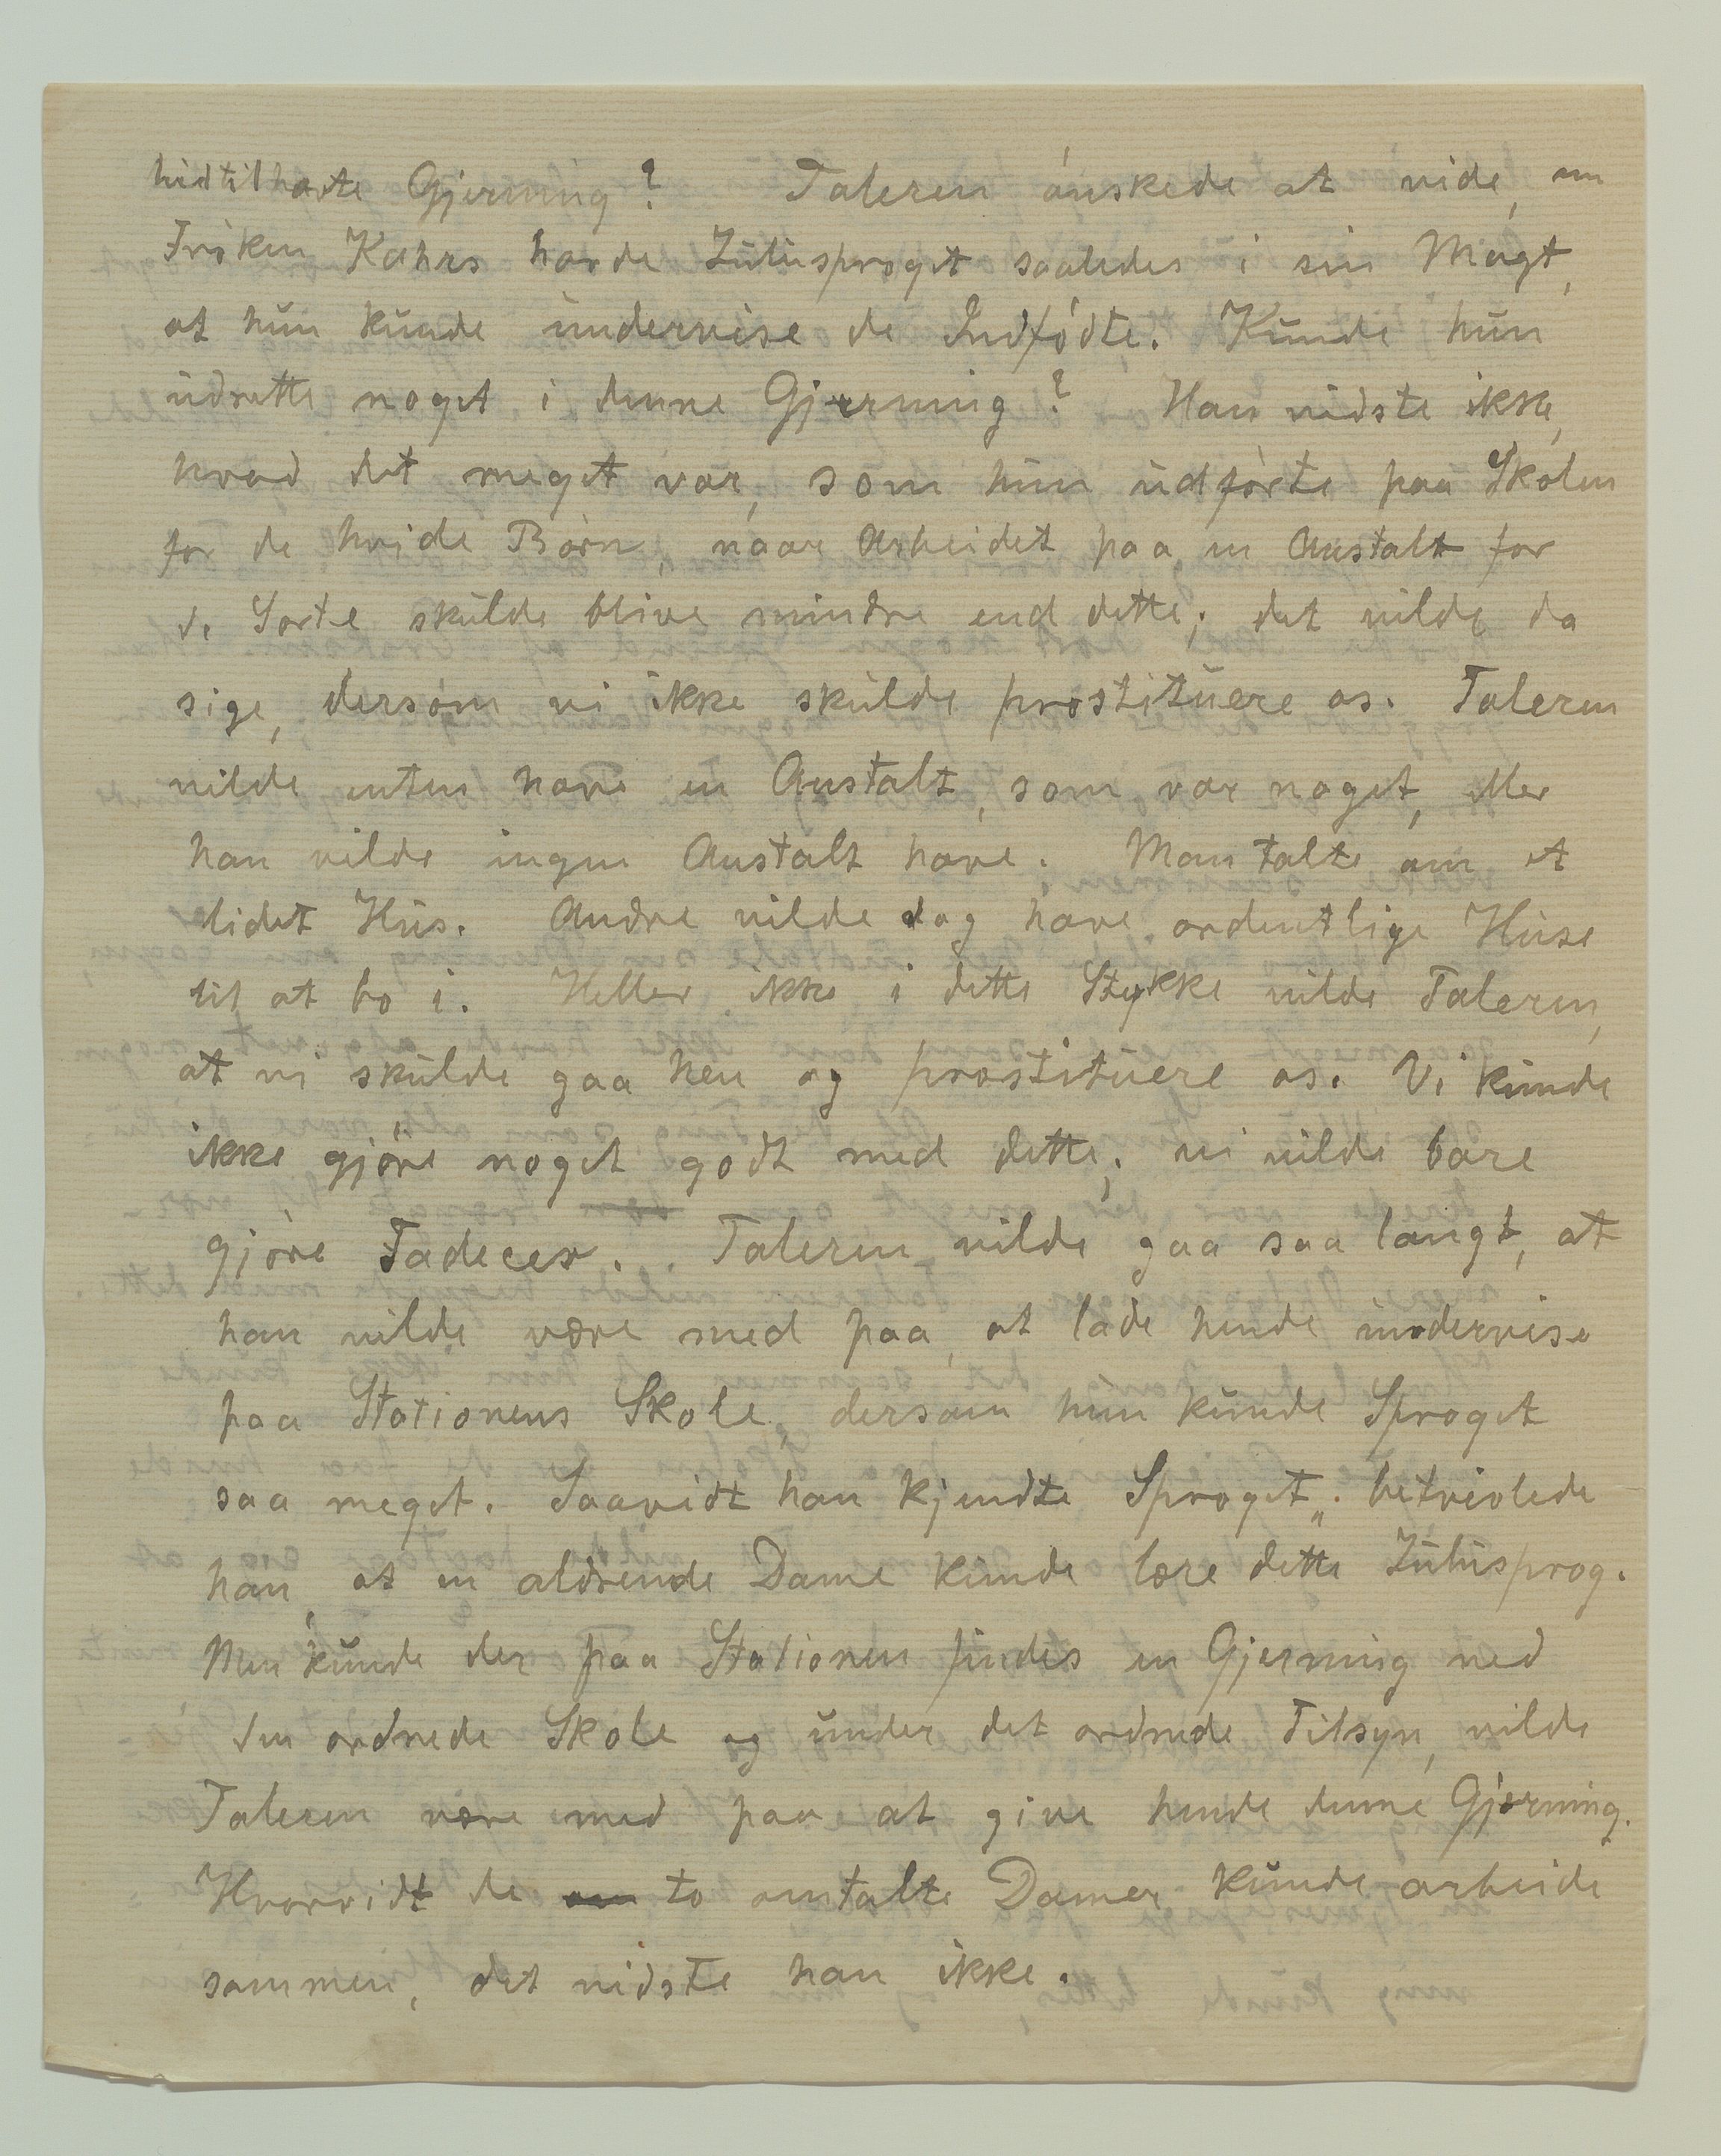 hidtil havte Gjerning? Taleren ønskede at vide, om
Frøken Kahrs havde Zulusproget saaledes i sin Magt,
at hun kunde undervise de Indfødte. Kunde hun
udrette noget i denne Gjerning? Han vidste ikke,
hvad det meget var, som hun udførte paa Skolen
for de hvide Børn, naar Arbeidet paa en Anstalt for
de Sorte skulde blive mindre end dette; det vilde da
sige, dersom vi ikke skulde prostituere os. Taleren
vilde enten have en Anstalt, som var noget, eller
han vilde ingen Anstalt have. Man talte om et
lidet Hus. Andre vilde dog have ordentlige Huse
til at bo i. Heller ikke i dette Stykke vilde Taleren,
at vi skulde gaa hen og prostituere os. Vi kunde
ikke gjøre noget godt med dette; vi vilde bare
gjøre Fadeeer... Taleren vilde gaa saa langt, at
han vilde være med paa, at lade hende undervise
paa Stationens Skole, dersom hun kunde Sproget
saa meget. Saavidt han kjendte Sproget, betvivlede
han, at en aldrende Dame kunde lære dette Zulusprog.
Men kunde der paa Stationen findes en Gjerning ved
den ordnede Skole og under det ordnede Tilsyn, vilde
Taleren være med paa at give hende denne Gjerning.
Hvorvidt de om to omtalte Damer kunde arbeide
sammen, det vidste han ikke.